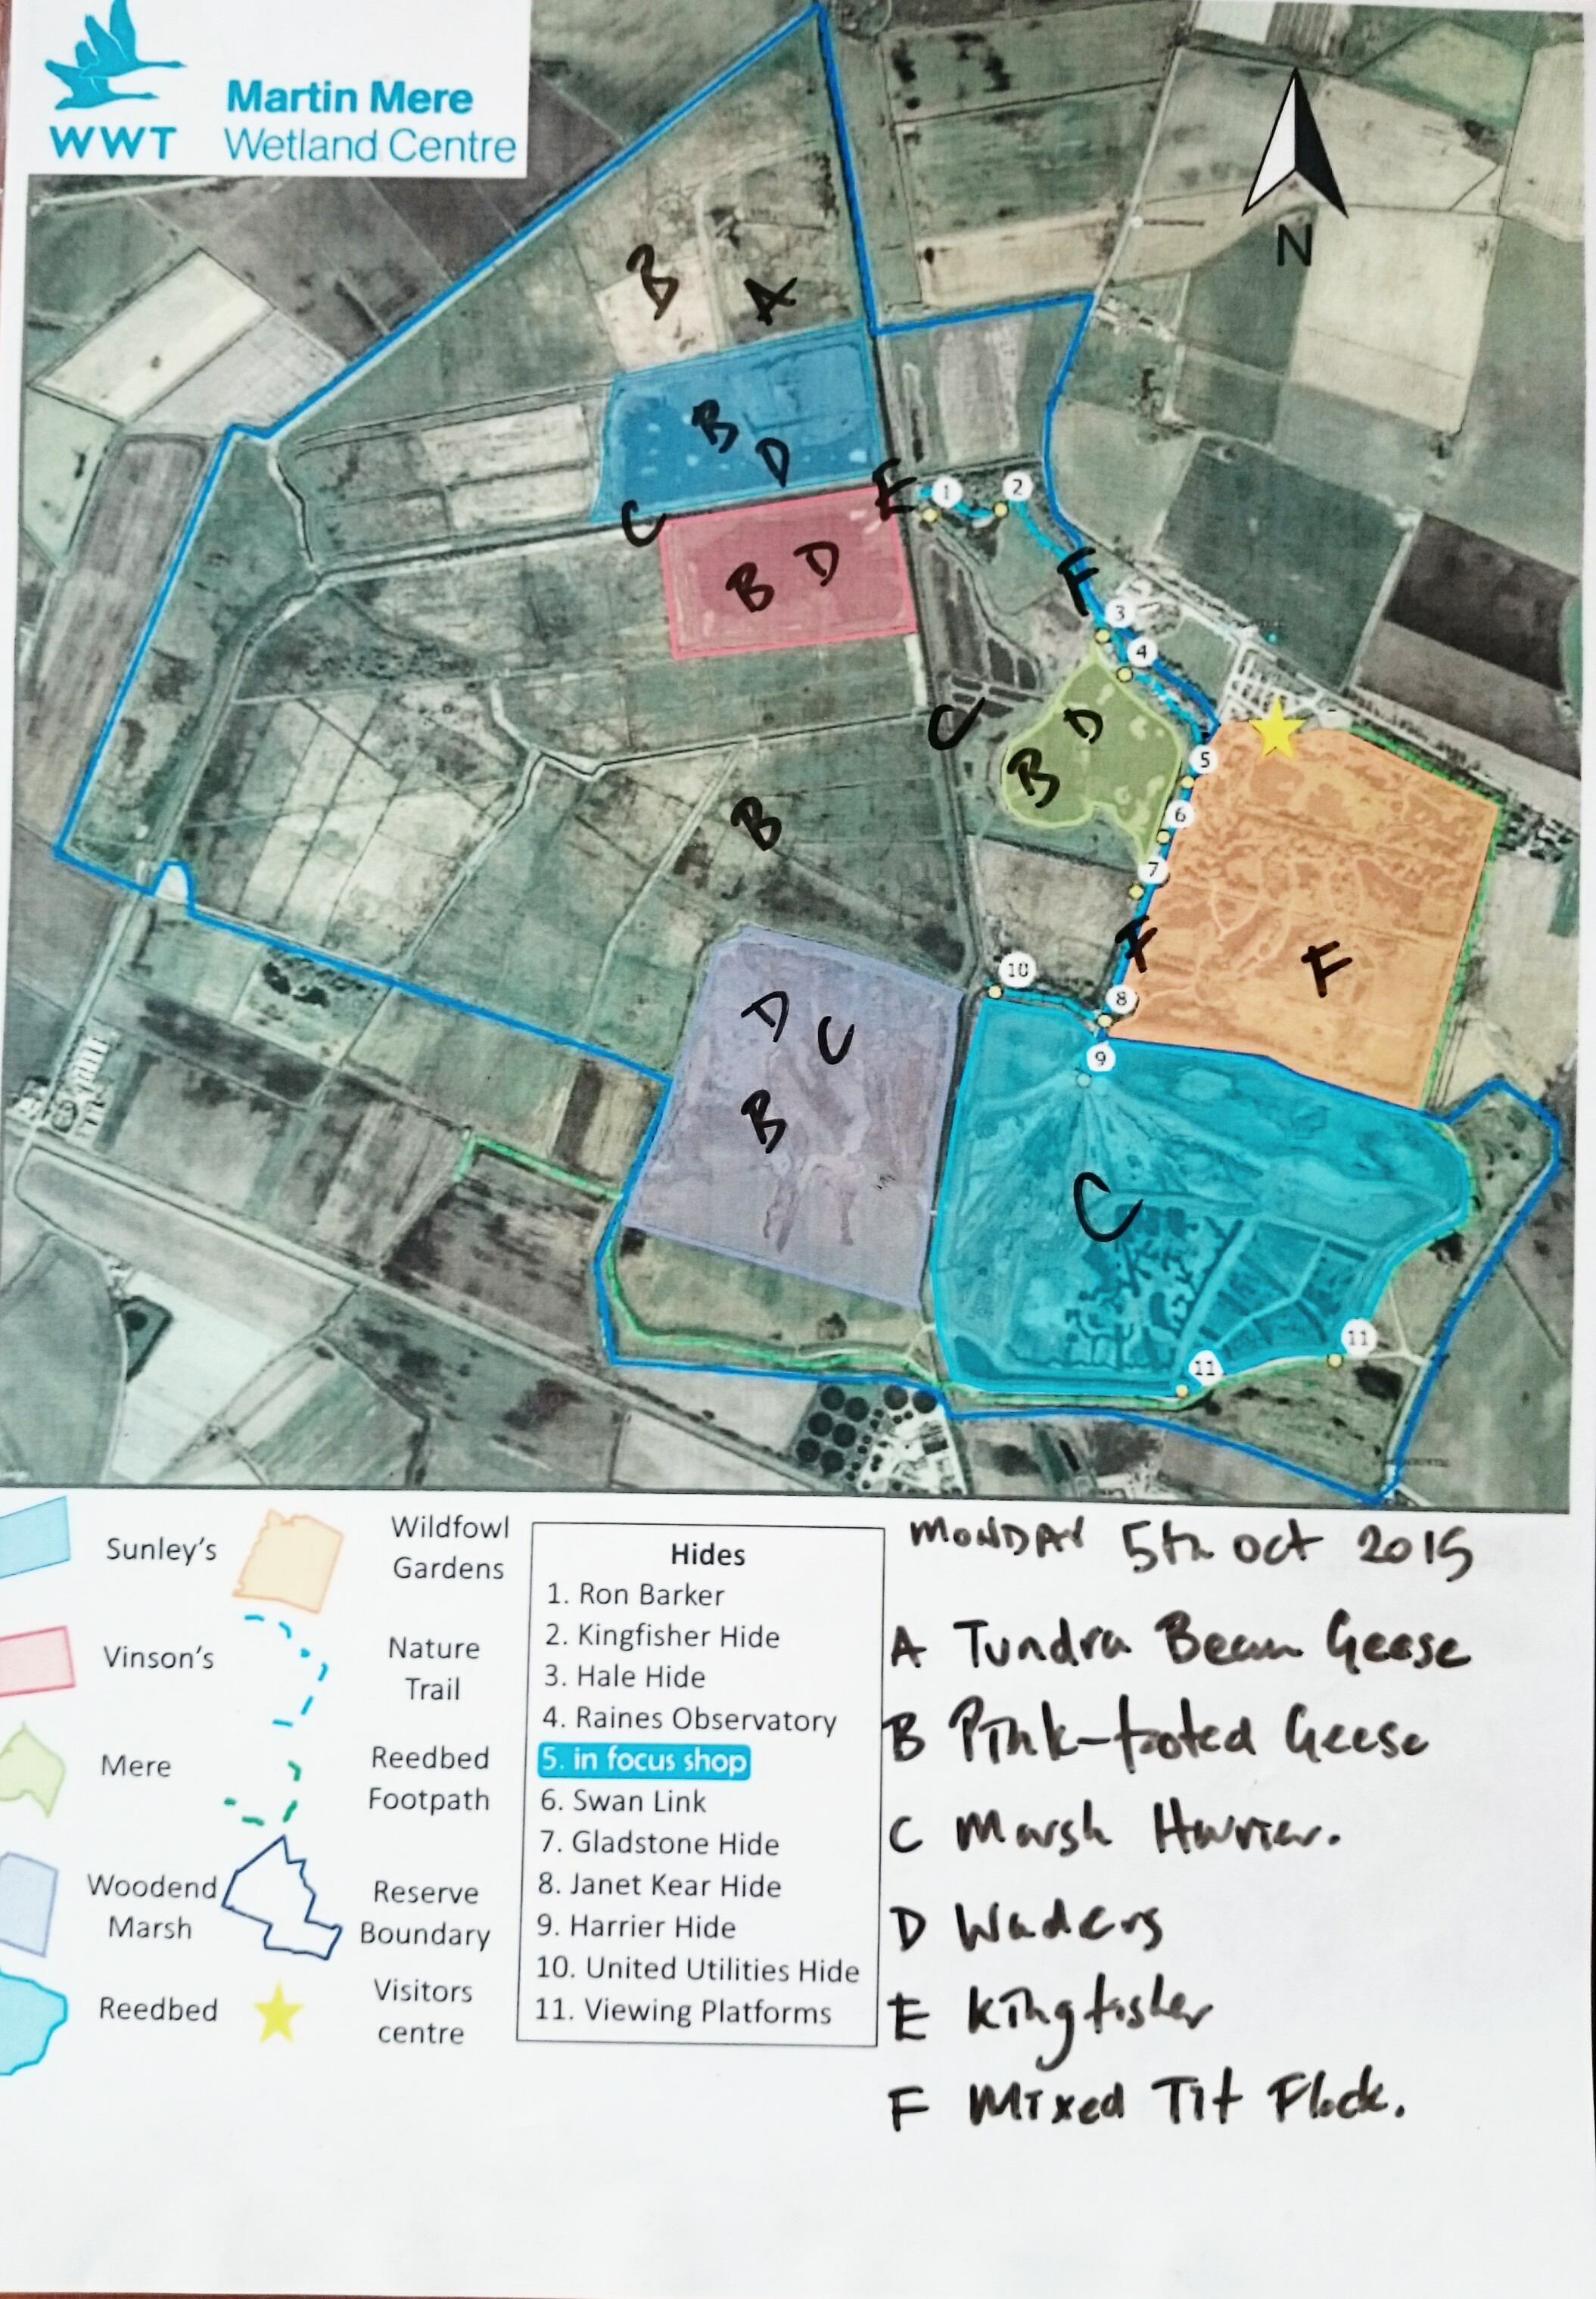 WWT
Martin Mere
Wetland Centre
N
B
A
B
D
E
1
2
C
B
D
F
3
4
C
D
B
5
B
6
7
F
F
10
8
D
C
9
B
C
11
11
Sunley's
Vinson's
Mere
Woodend
Marsh
Reedbed
Wildfowl
Gardens
Nature
Trail
Reedbed
Footpath
Reserve
Boundary
Visitors
centre
Hides
1. Ron Barker
2. Kingfisher Hide
3. Hale Hide
4. Raines Observatory
5. in focus shop
6. Swan Link
7. Gladstone Hide
8. Janet Kear Hide
9. Harrier Hide
10. United Utilities Hide
11. Viewing Platforms
MONDAY 5th oct 2015
A Tundra Bean Geese
B Pink-footed Geese
C Marsh Harrier.
D Waders
E Kingfisher
F Mixed Tit Flock.